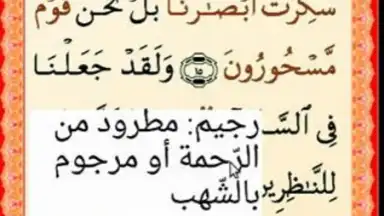 سُكِّرَتْ أَبْصَٰرُنَا بَلْ نَحْنُ قَوْمٌ
مَّسْحُورُونَ ١٥ وَلَقَدْ جَعَلْنَا
فِى
رجيم: مطرودَ من
الرّحمة أو مرجوم
لِلنَّٰظِرِينَ
بالشّهب